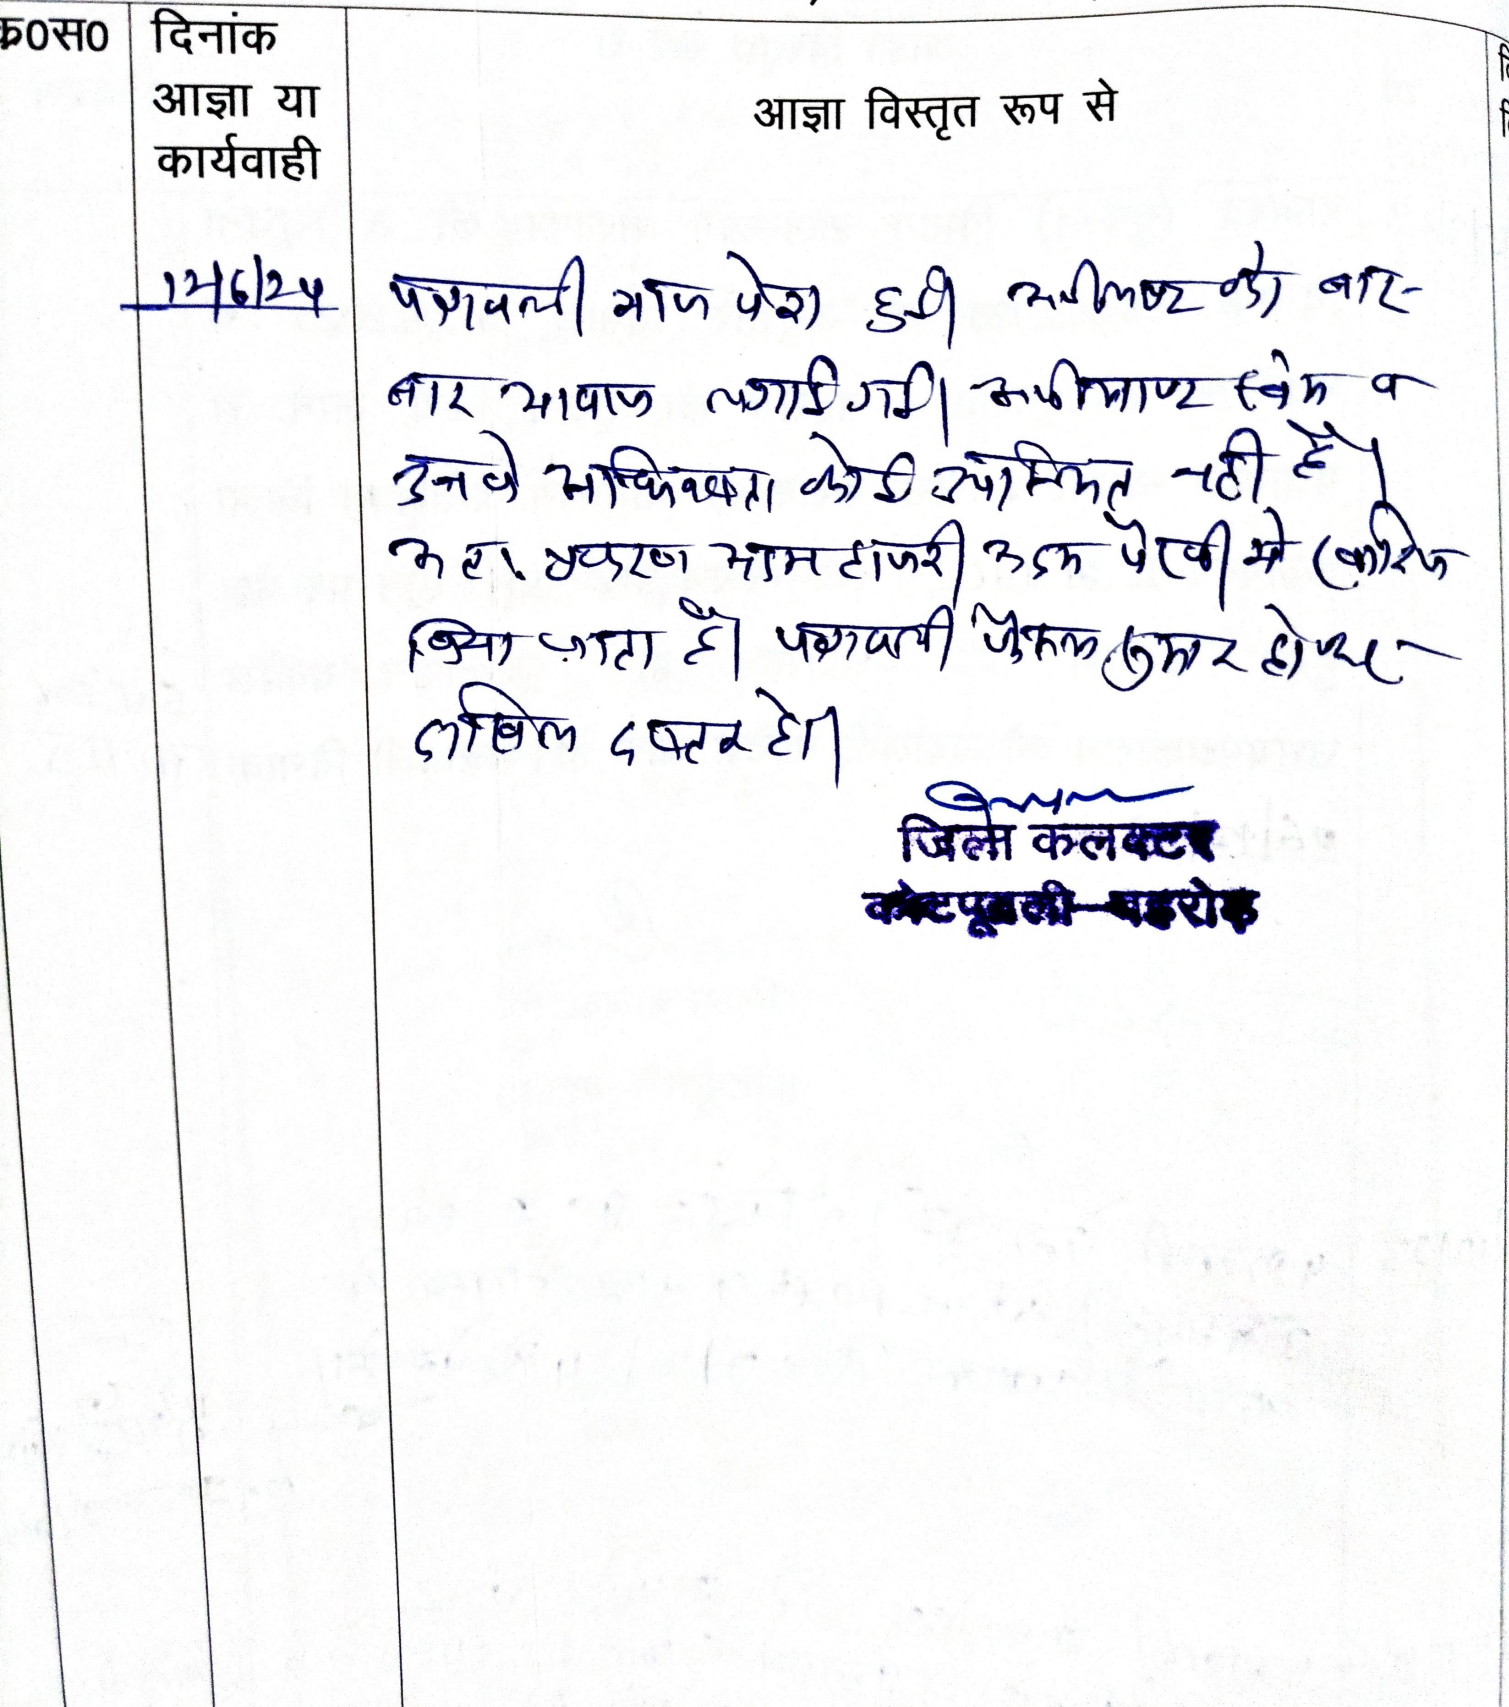 क्र0स0
दिनांक
आज्ञा या
कार्यवाही
आज्ञा विस्तृत रूप से
12/6/24
पत्रावली आज पेश हुई। अपीलाण्ट को बार-
बार आवाज लगाई गई। अपीलाण्ट स्वंय व
उनके अधिवक्ता कोई उपस्थित नही है।
अतः प्रकरण अदम हाजरी अदम पैरवी मे खारिज
किया जाता है। पत्रावली फैसल शुमार होकर
दाखिल दफ्तर हो।
जिला कलक्टर
कोटपूतली-बहरोड़